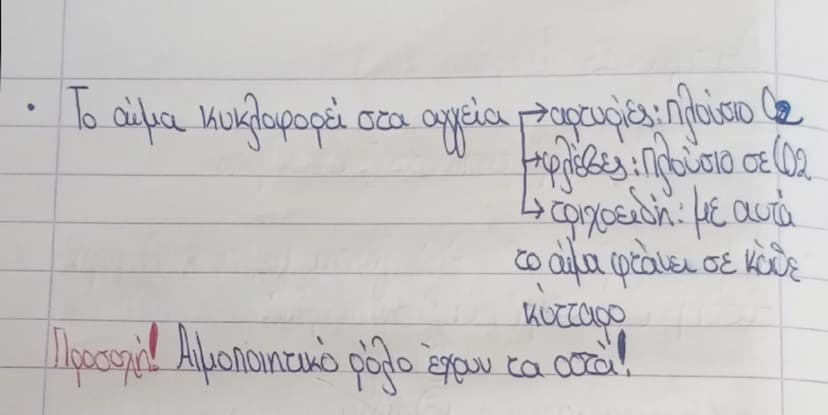 • Το αίμα κυκλοφορεί στα αγγεία → αρτηρίες: πλούσιο O2
→ φλέβες: πλούσιο σε CO2
→ τριχοειδή: με αυτά
το αίμα φτάνει σε κάθε
κύτταρο
Προσοχή! Αιμοποιητικό ρόλο έχουν τα οστά!